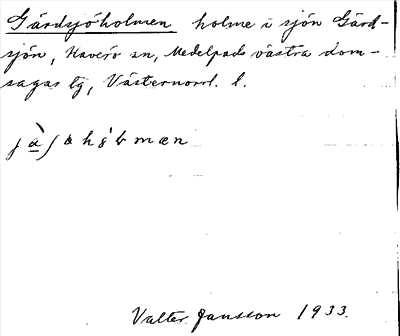 Gärdsjöholmen holme i sjön Gärd-
sjön, Haverö sn, Medelpads västra dom-
sagas tg, Västernorrl. l.
Valter Jansson 1933.